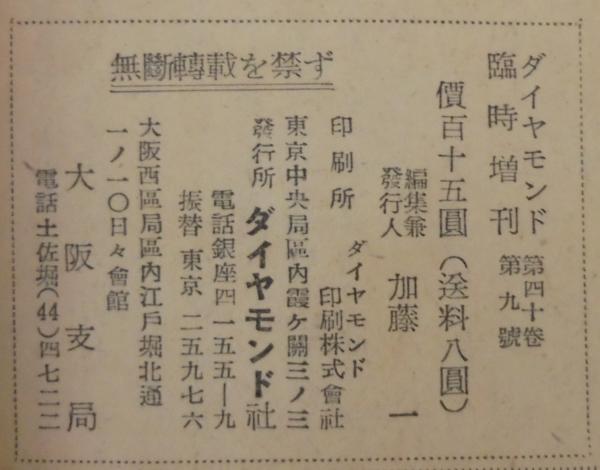 無斷轉載を禁ず
ダイヤモンド
臨時增刊
第四十卷
第九號
價百十五圓(送料八圓)
編集兼
發行人
加藤一
印刷所
ダイヤモンド
印刷株式會社
東京中央局區內霞ケ關三ノ三
發行所 ダイヤモンド社
電話銀座四一五五—九
振替 東京 二五九七六
大阪西區局區內江戶堀北通
一ノ一〇日々會館
大阪支局
電話土佐堀(44)四七二二